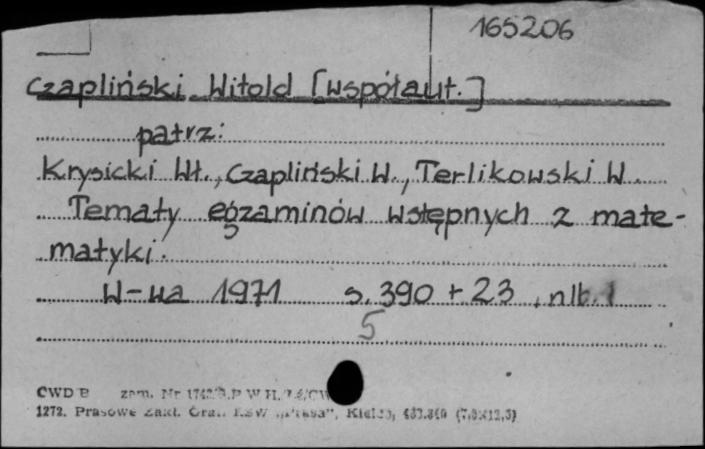 165206
Czapliński Witold [współaut.]
patrz:
Krysicki Wł., Czapliński W., Terlikowski W.
Tematy egzaminów wstępnych z mate-
matyki.
W-wa 1971 s. 390 + 23, nlb. 1
5
CWD B zam. Nr
1272. Prasowe Zakł. Graf. RSW „Prasa", Kielce,